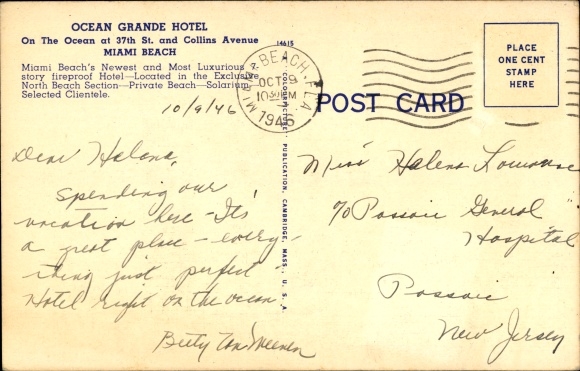 OCEAN GRANDE HOTEL
On The Ocean at 37th St. and Collins Avenue
MIAMI BEACH
Miami Beach's Newest and Most Luxurious
story fireproof Hotel—Located in the Exclusive
North Beach Section—Private Beach—Solarium
Selected Clientele.
10/9/46
Dear Helena,
Spending our
vacation here - It's
a great place - every-
thing just perfect -
Hotel right on the ocean.
Betty
14615
COLOURPICTURE PUBLICATION, CAMBRIDGE, MASS., U.S.A.
MIAMI BEACH, FLA.
OCT 9
1946
POST CARD
PLACE
ONE CENT
STAMP
HERE
Miss Helena
c/o Passaic General
Hospital
Passaic
New Jersey